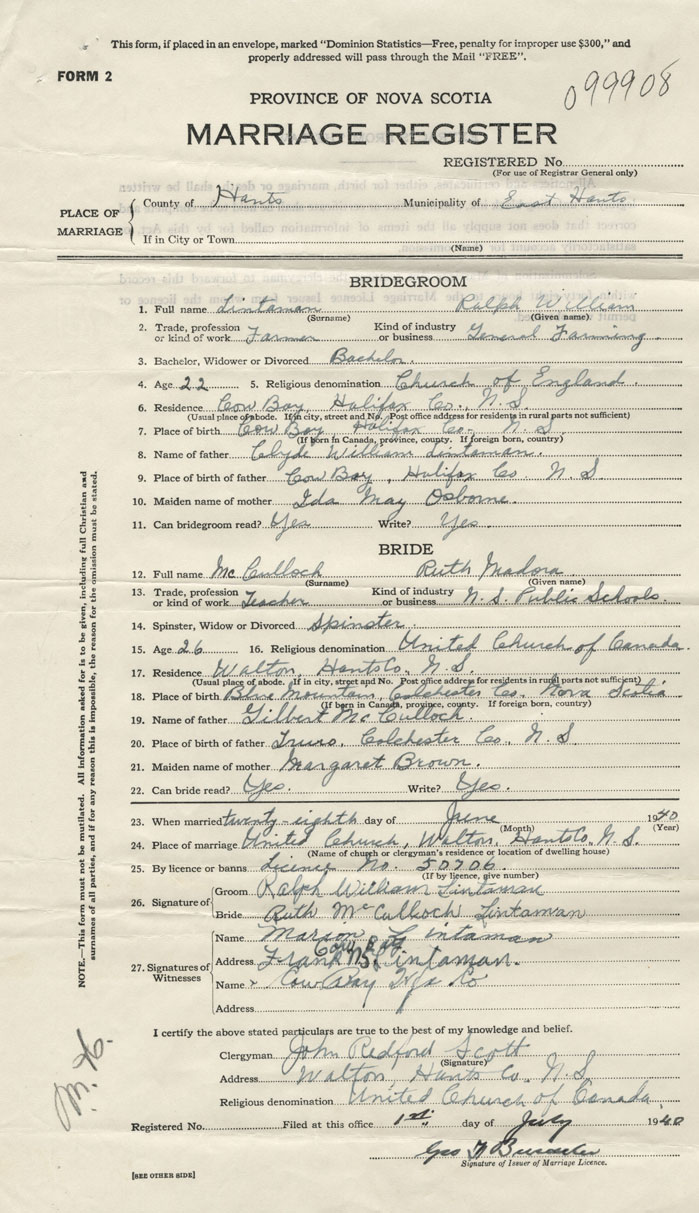 This form, if placed in an envelope, marked "Dominion Statistics—Free, penalty for improper use $300," and
properly addressed will pass through the Mail "FREE".
FORM 2
099908
PROVINCE OF NOVA SCOTIA
MARRIAGE REGISTER
REGISTERED No.
(For use of Registrar General only)
PLACE OF MARRIAGE
County of Hants Municipality of East Hants
If in City or Town
(Name)
BRIDEGROOM
1. Full name Lintaman Ralph William
(Surname) (Given name)
2. Trade, profession or kind of work Farmer Kind of industry or business General Farming.
3. Bachelor, Widower or Divorced Bachelor.
4. Age 22 5. Religious denomination Church of England.
6. Residence Cow Bay, Halifax Co., N.S.
(Usual place of abode. If in city, street and No. Post office address for residents in rural parts not sufficient)
7. Place of birth Cow Bay Halifax Co. N.S
(If born in Canada, province, county. If foreign born, country)
8. Name of father Clyde William Lintaman.
9. Place of birth of father Cow Bay, Halifax Co N.S
10. Maiden name of mother Ida May Osborne
11. Can bridegroom read? Yes Write? Yes.
BRIDE
12. Full name McCulloch Ruth Madora
(Surname) (Given name)
13. Trade, profession or kind of work Teacher Kind of industry or business N.S. Public Schools.
14. Spinster, Widow or Divorced Spinster
15. Age 26 16. Religious denomination United Church of Canada.
17. Residence Walton, Hants Co., N.S
(Usual place of abode. If in city, street and No. Post office address for residents in rural parts not sufficient)
18. Place of birth Blue Mountain, Colchester Co. Nova Scotia
(If born in Canada, province, county. If foreign born, country)
19. Name of father Gilbert McCulloch.
20. Place of birth of father Truro, Colchester Co. N.S.
21. Maiden name of mother Margaret Brown.
22. Can bride read? Yes. Write? Yes.
23. When married twenty-eighth day of June 1940
(Month) (Year)
24. Place of marriage United Church, Walton, Hants Co, N.S.
(Name of church or clergyman's residence or location of dwelling house)
25. By licence or banns Licence No. 50706
(If by licence, give number)
26. Signature of
Groom Ralph William Lintaman
Bride Ruth McCulloch Lintaman
27. Signatures of Witnesses
Name Marion Lintaman
Cow Bay
Address Frank Lintaman.
Name Cow Bay Hfx Co
Address
I certify the above stated particulars are true to the best of my knowledge and belief.
Clergyman John Redford Scott
(Signature)
Address Walton, Hants Co, N.S
Religious denomination United Church of Canada.
Registered No. Filed at this office 1st day of July 1940
Geo
Signature of Issuer of Marriage Licence.
[SEE OTHER SIDE]
NOTE.—This form must not be mutilated. All information asked for is to be given, including full Christian and
surnames of all parties, and if for any reason this is impossible, the reason for the omission must be stated.